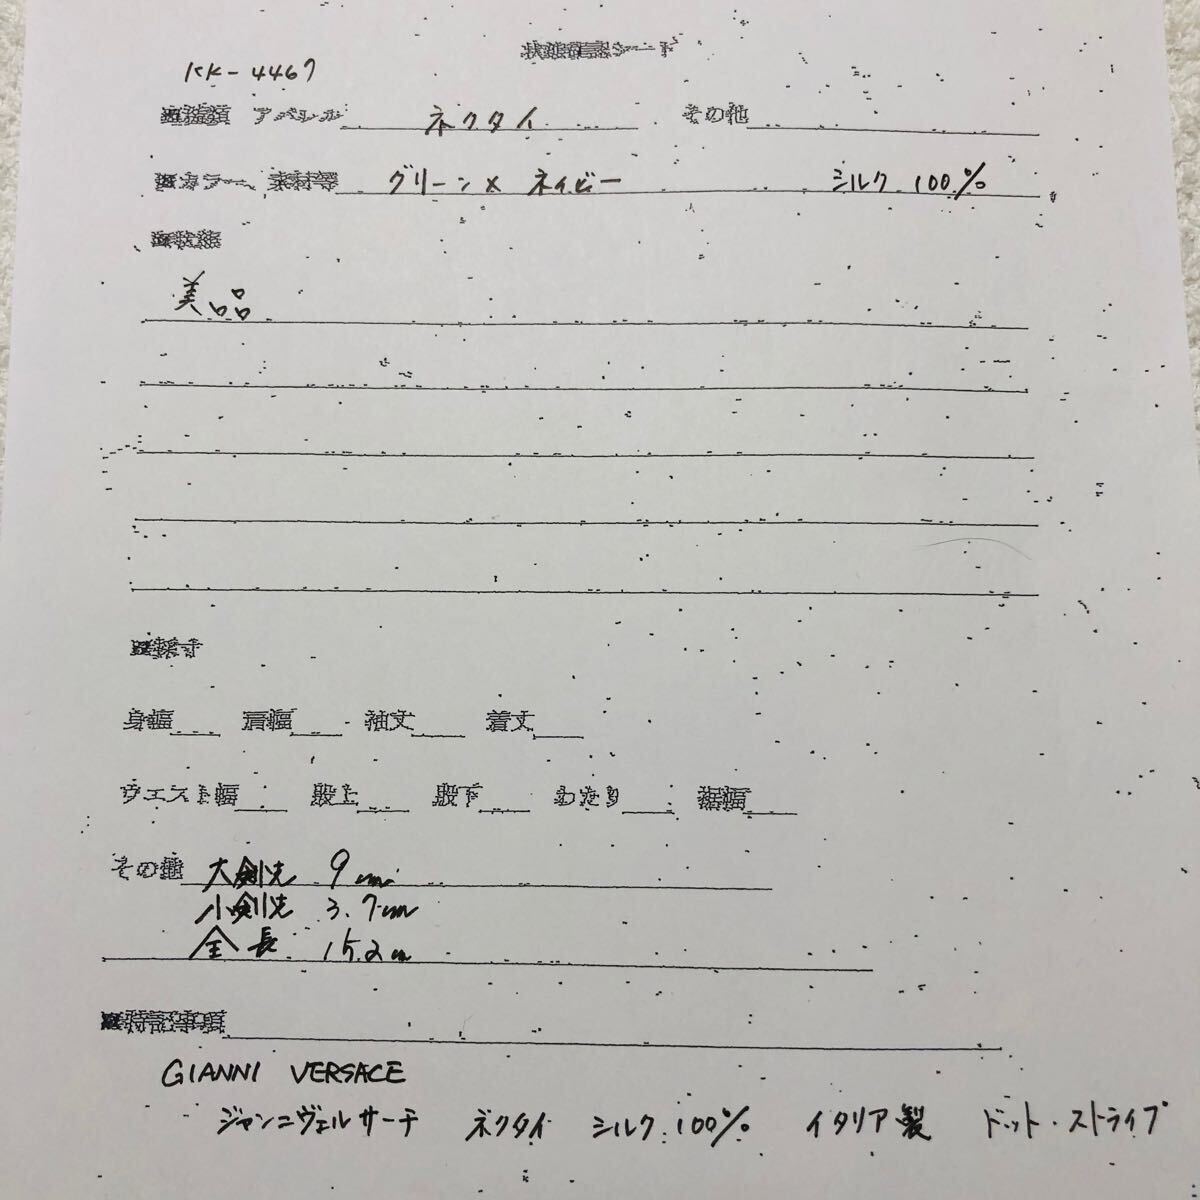 状態確認シート
KK-4467
■種類 アパレル ネクタイ その他
■カラー、素材等 グリーン×ネイビー シルク 100%
■状態
美品
■採寸
身幅 肩幅 袖丈 着丈
ウエスト幅 股上 股下 わたり 裾幅
その他 大剣先 9cm
小剣先 3.7cm
全長 152cm
■特記事項
GIANNI VERSACE
ジャンニヴェルサーチ ネクタイ シルク 100% イタリア製 ドット・ストライプ